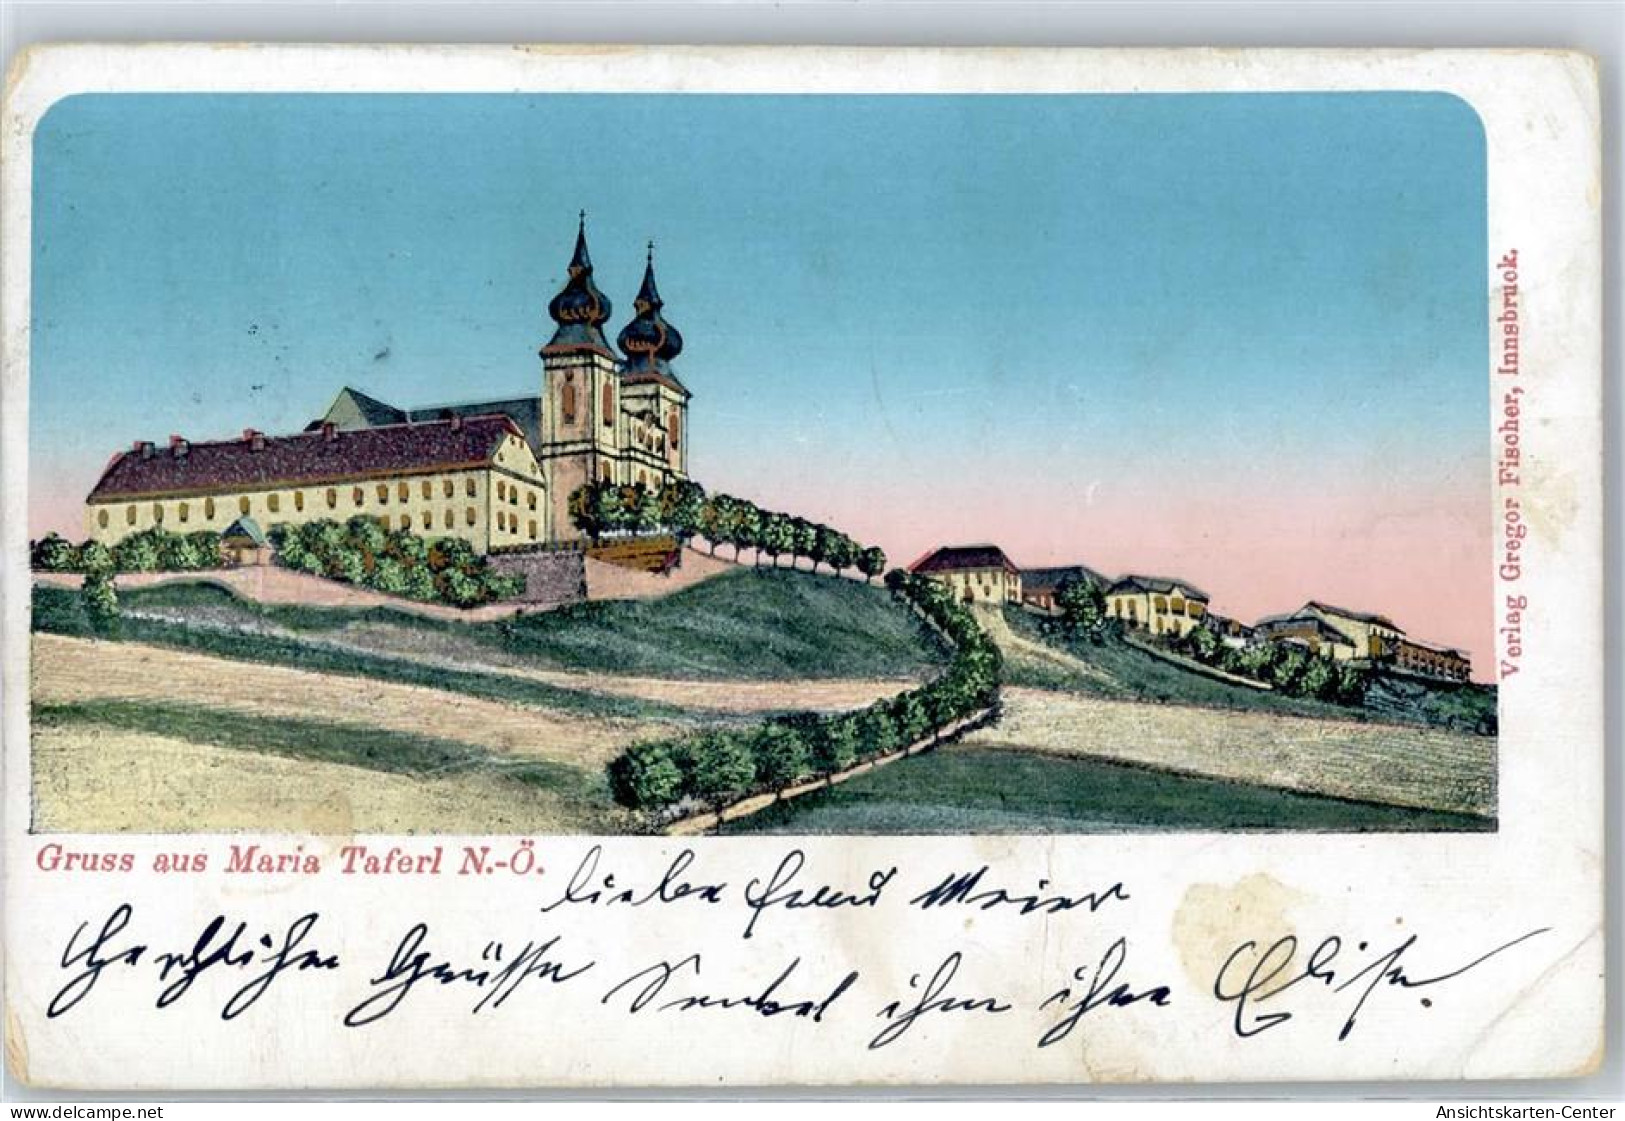 Gruss aus Maria Taferl N.-Ö.
liebe Frau Meier
Herzliche Grüsse Sendet ihnen ihre Elise.
Verlag Gregor Fischer, Innsbruck.
www.delcampe.net
Ansichtskarten-Center